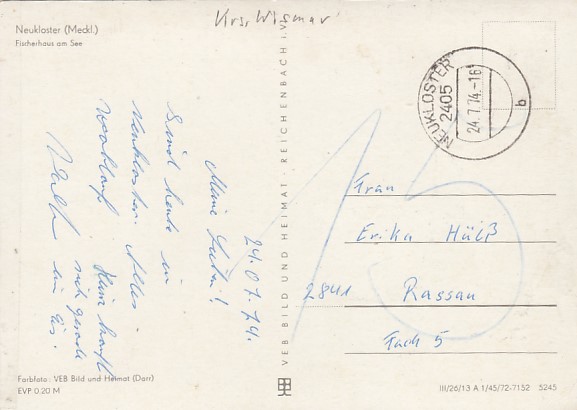 Krs. Wismar
Neukloster (Meckl.)
Fischerhaus am See
NEUKLOSTER
2405
24.7.74.-16
b
24.07.74.
Meine Guten!
Sind heute in
Neukloster. Alles
wohlauf.
kauft
sich gerade
ein Eis.
VEB BILD UND HEIMAT · REICHENBACH i.V.
15
Frau
Erika Hülß
2841 Rassau
Fach 5
Farbfoto: VEB Bild und Heimat (Darr)
EVP 0.20 M
III/26/13 A 1/45/72-7152 5245